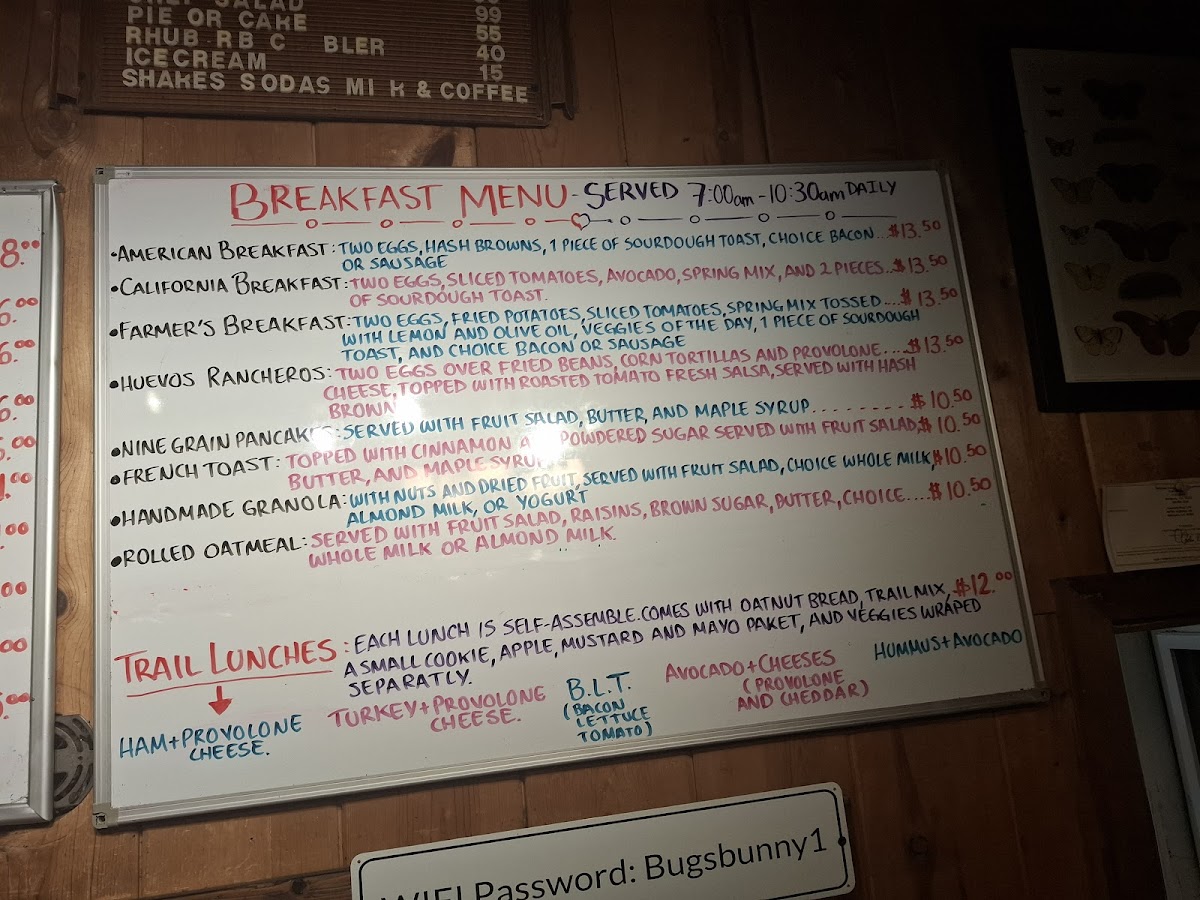 SALAD
PIE OR CAKE 99
RHUB RB C BLER 55
ICECREAM 40
SHAKES SODAS MI K & COFFEE 15
BREAKFAST MENU - SERVED 7:00am - 10:30am DAILY
•AMERICAN BREAKFAST: TWO EGGS, HASH BROWNS, 1 PIECE OF SOURDOUGH TOAST, CHOICE BACON...$13.50
OR SAUSAGE
•CALIFORNIA BREAKFAST: TWO EGGS, SLICED TOMATOES, AVOCADO, SPRING MIX, AND 2 PIECES..$13.50
OF SOURDOUGH TOAST.
•FARMER'S BREAKFAST: TWO EGGS, FRIED POTATOES, SLICED TOMATOES, SPRING MIX TOSSED...$13.50
WITH LEMON AND OLIVE OIL, VEGGIES OF THE DAY, 1 PIECE OF SOURDOUGH
TOAST, AND CHOICE BACON OR SAUSAGE
•HUEVOS RANCHEROS: TWO EGGS OVER FRIED BEANS, CORN TORTILLAS AND PROVOLONE....$13.50
CHEESE, TOPPED WITH ROASTED TOMATO FRESH SALSA, SERVED WITH HASH
BROWN
•NINE GRAIN PANCAKES: SERVED WITH FRUIT SALAD, BUTTER, AND MAPLE SYRUP........$10.50
•FRENCH TOAST: TOPPED WITH CINNAMON AND POWDERED SUGAR SERVED WITH FRUIT SALAD, $10.50
BUTTER, AND MAPLE SYRUP
•HANDMADE GRANOLA: WITH NUTS AND DRIED FRUIT, SERVED WITH FRUIT SALAD, CHOICE WHOLE MILK, $10.50
ALMOND MILK, OR YOGURT
•ROLLED OATMEAL: SERVED WITH FRUIT SALAD, RAISINS, BROWN SUGAR, BUTTER, CHOICE....$10.50
WHOLE MILK OR ALMOND MILK.
TRAIL LUNCHES: EACH LUNCH IS SELF-ASSEMBLE. COMES WITH OATNUT BREAD, TRAIL MIX, $12.00
A SMALL COOKIE, APPLE, MUSTARD AND MAYO PAKET, AND VEGGIES WRAPED
SEPARATLY.
HAM+PROVOLONE
CHEESE.
TURKEY+PROVOLONE
CHEESE.
B.L.T.
(BACON
LETTUCE
TOMATO)
AVOCADO+CHEESES
(PROVOLONE
AND CHEDDAR)
HUMMUS+AVOCADO
WIFI Password: Bugsbunny1